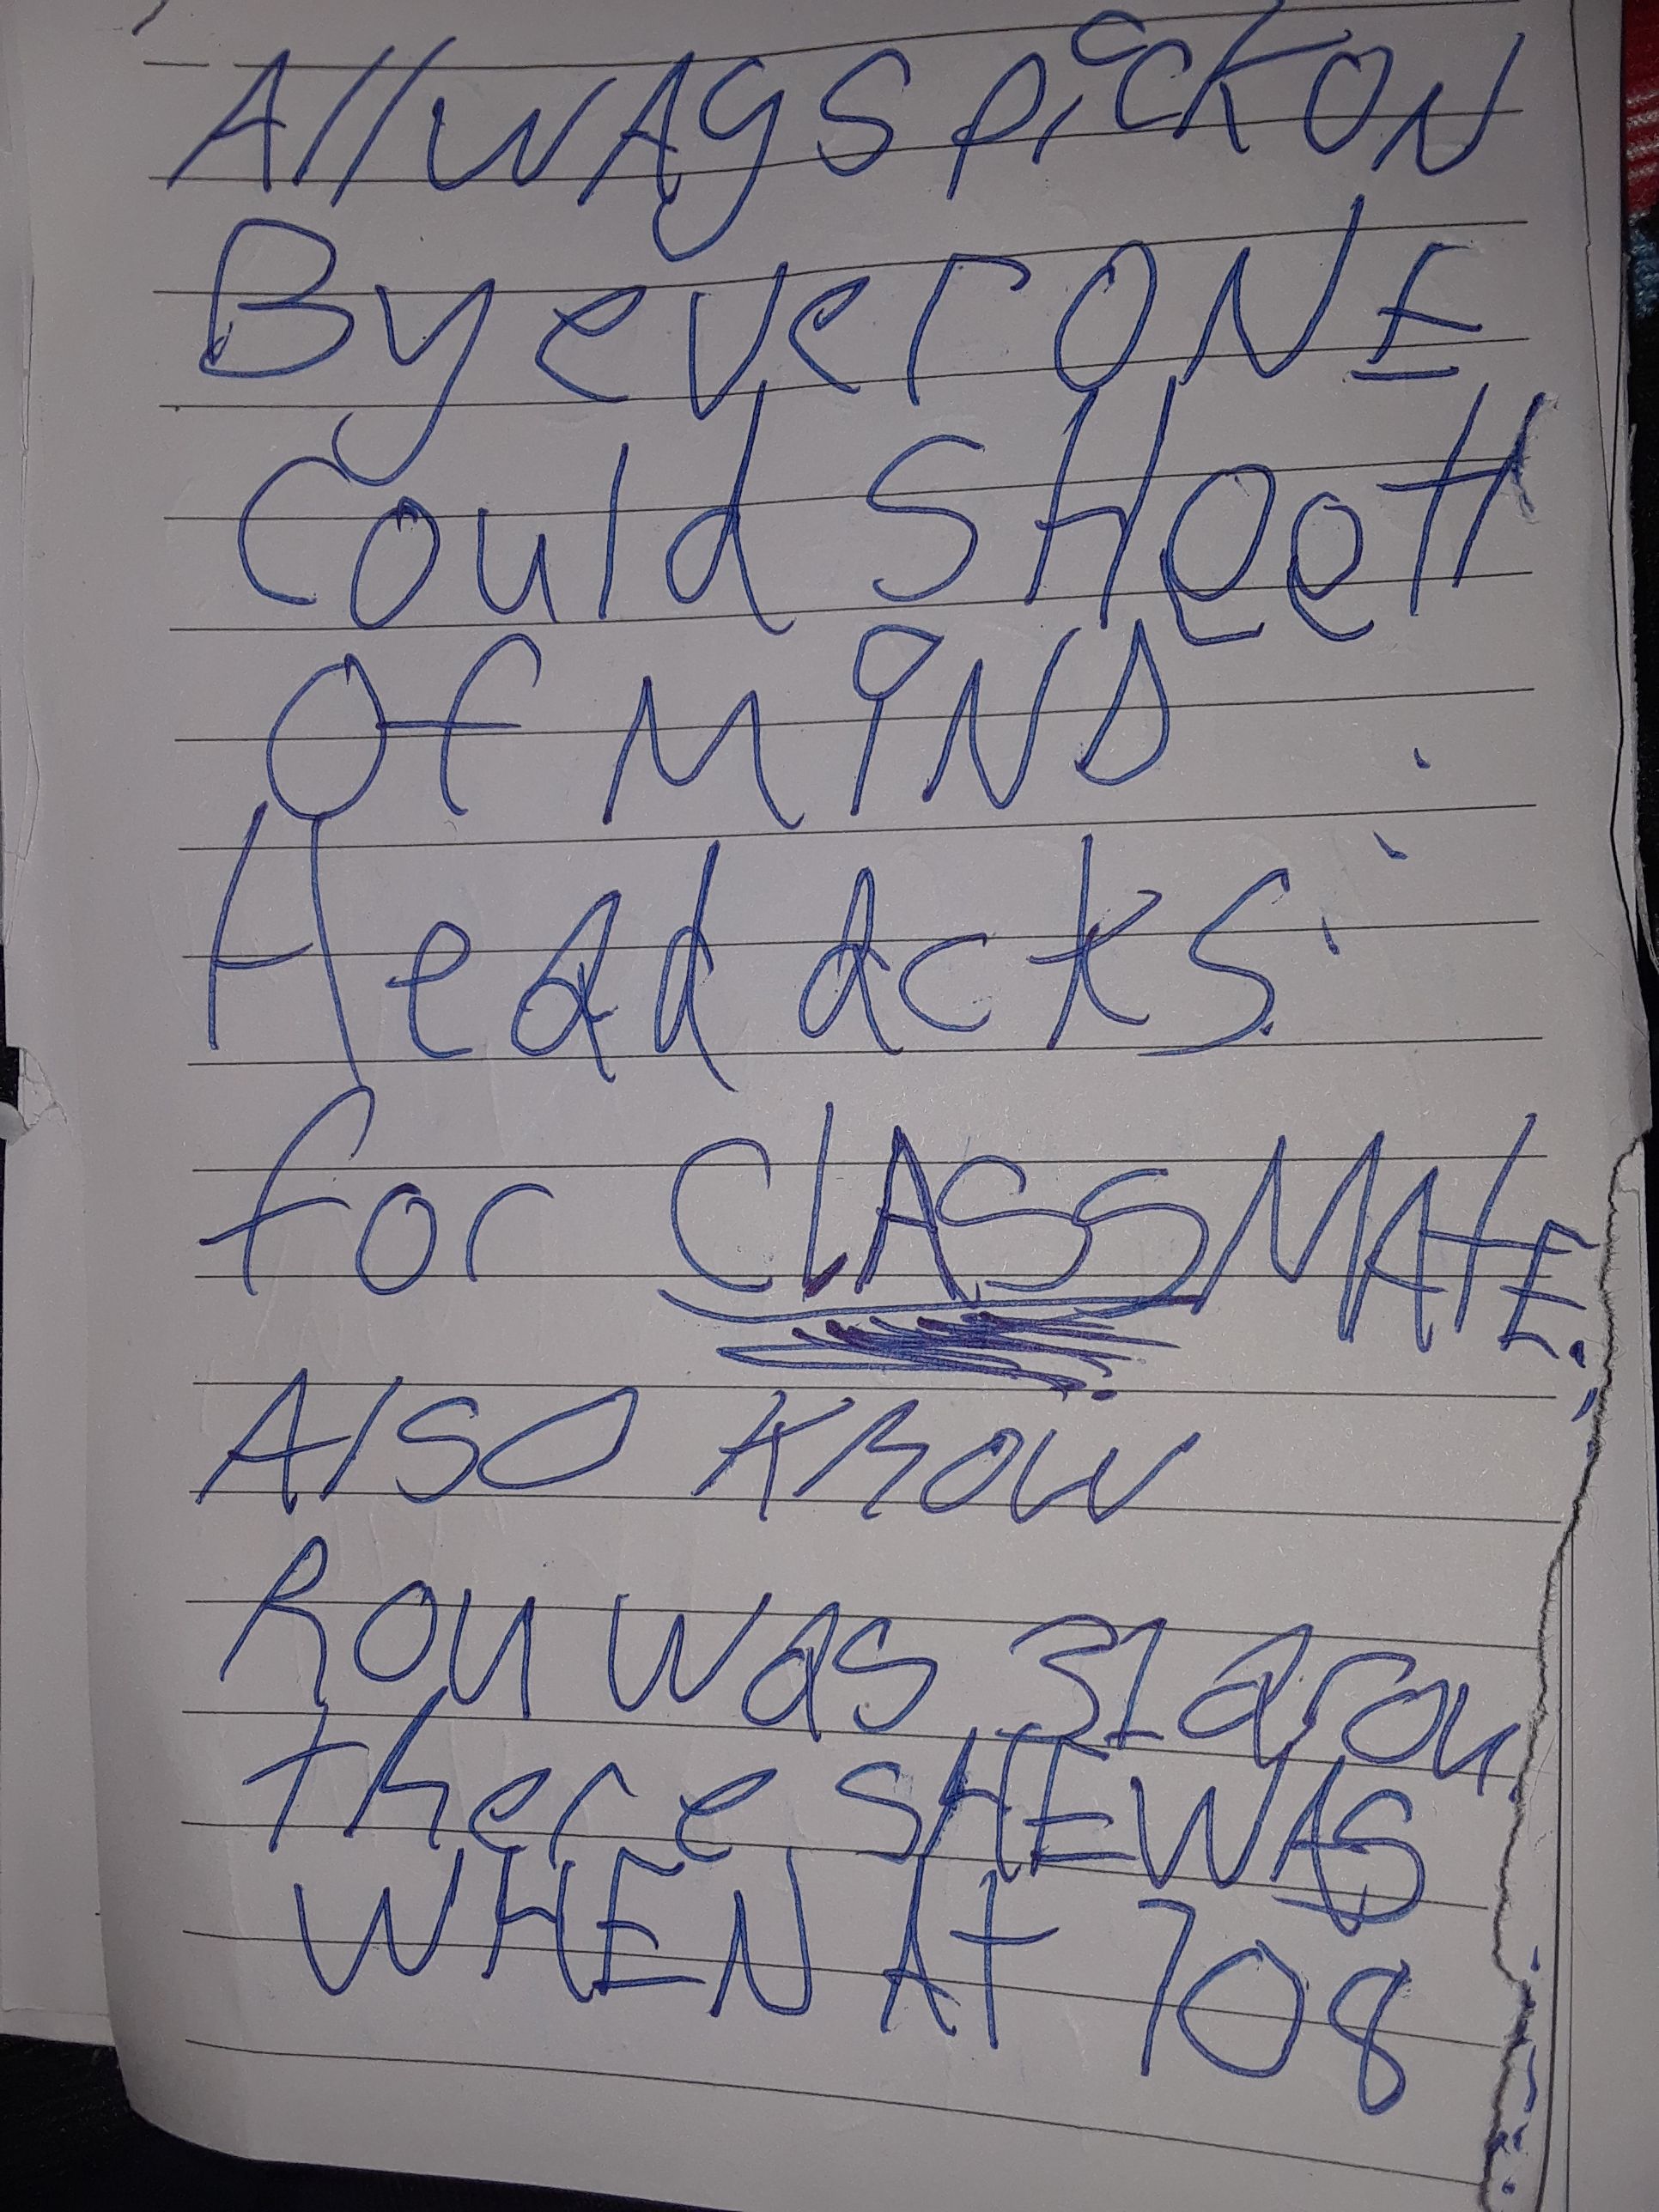 Allways pick ON
By ever ONE
could SHeet
Of MiND
Head acks.
for CLASSMATE.
Also know
Rou was 31 arou
there SHE WAS
WHEN AT 708